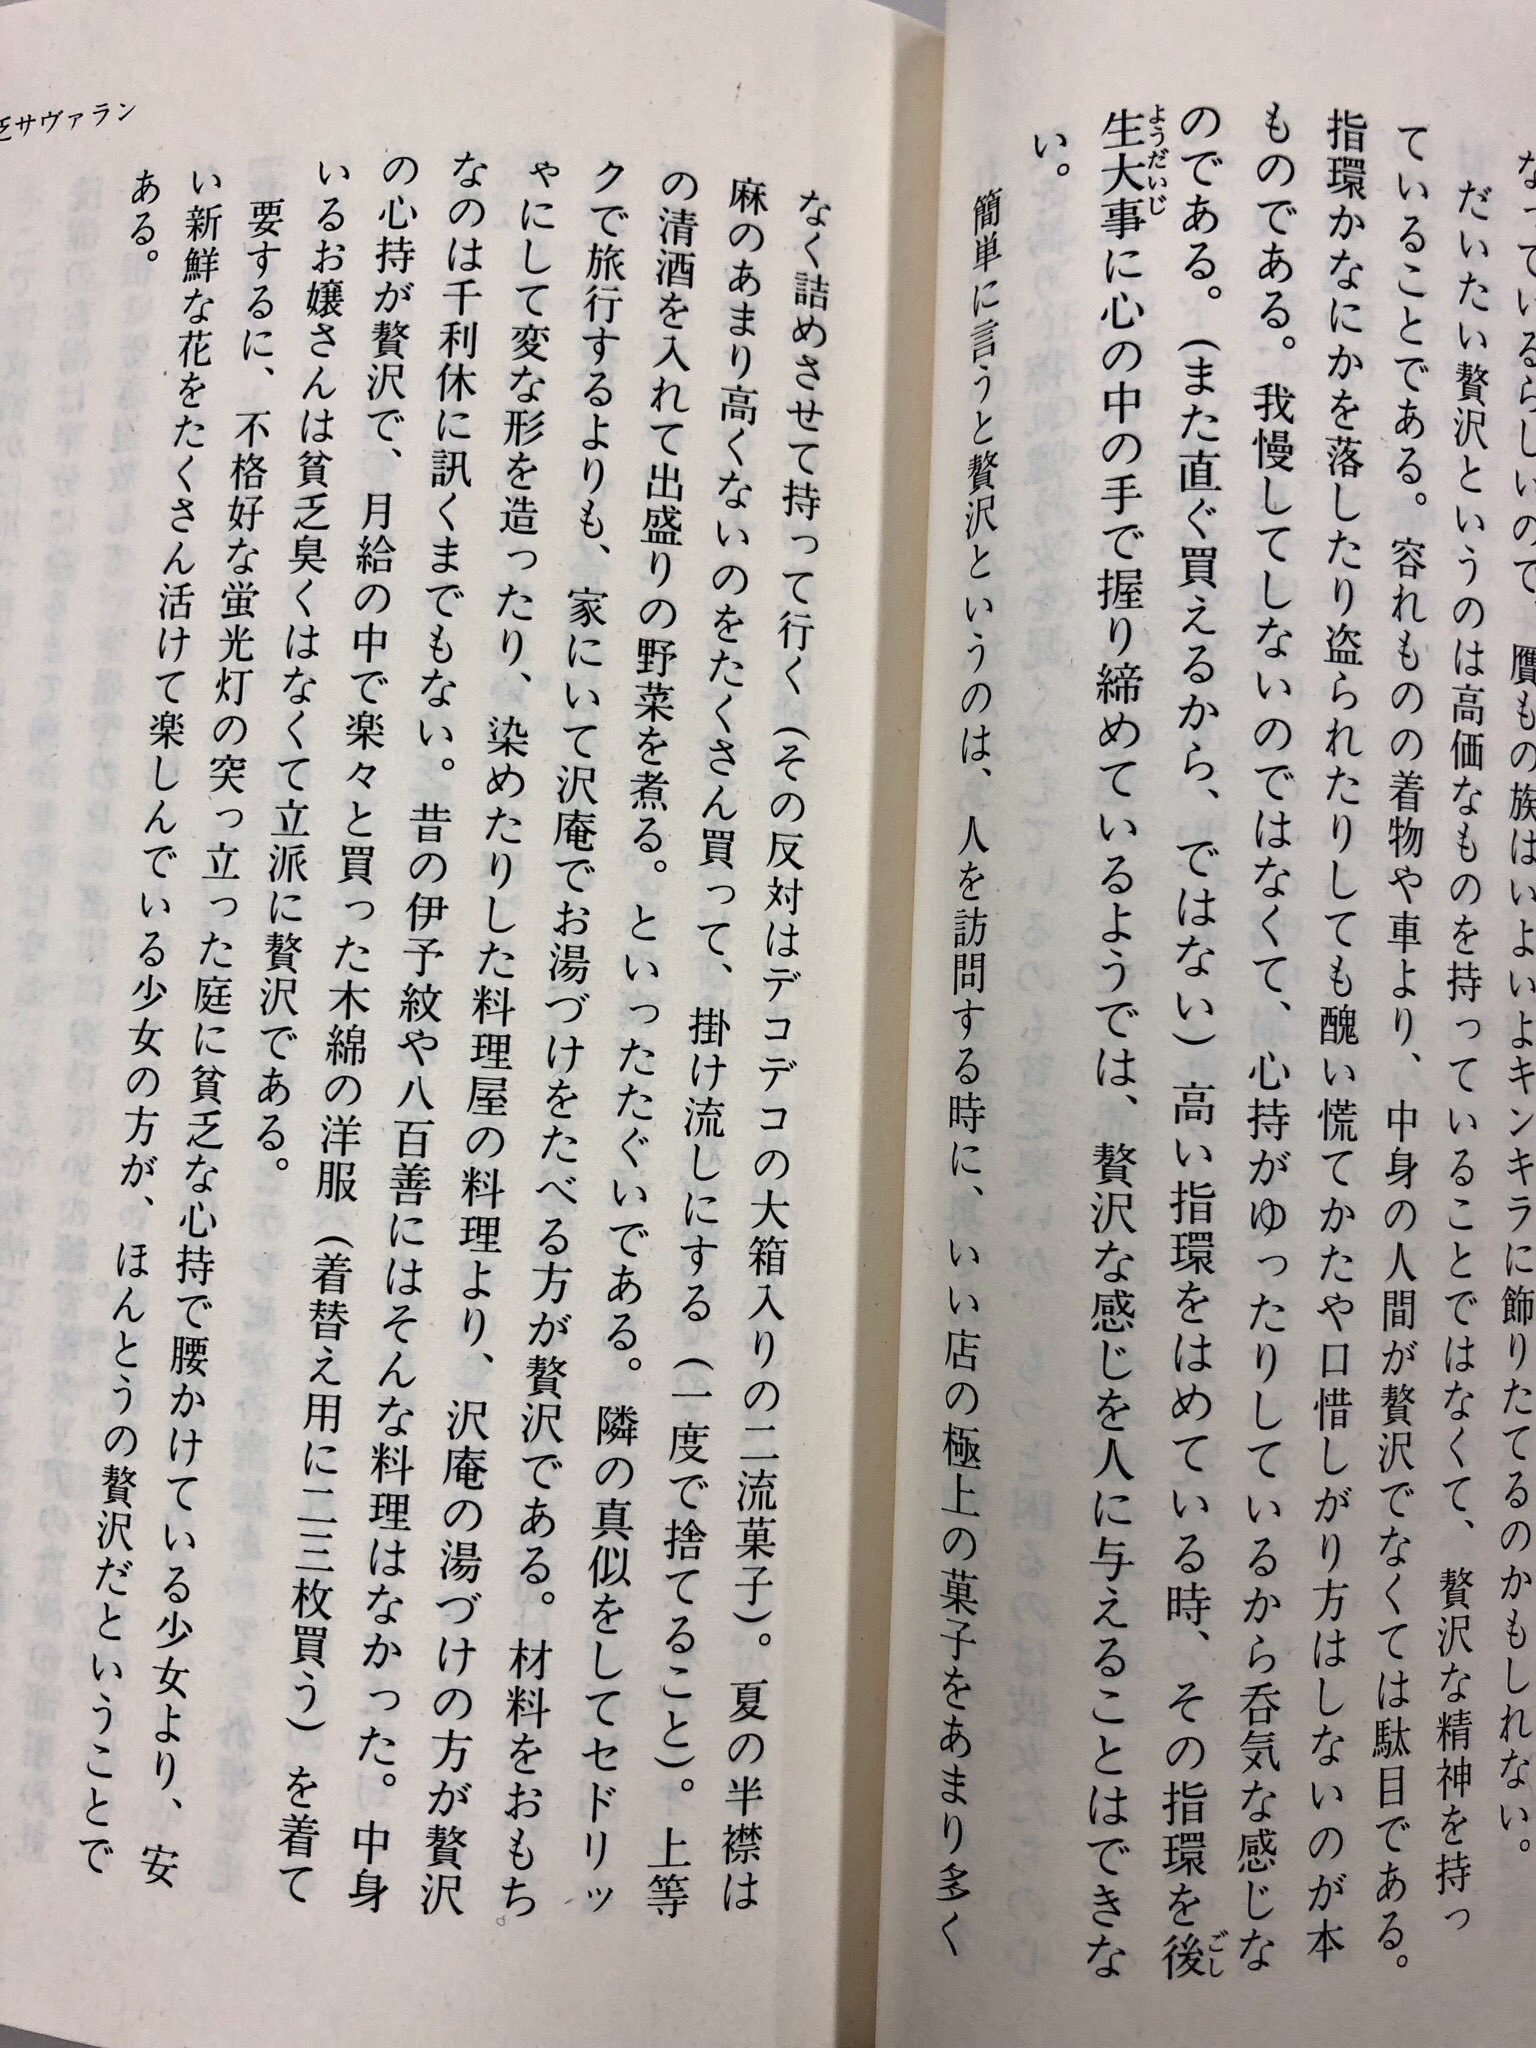 なっているらしいので、贋もの族はいよいよキンキラに飾りたてるのかもしれない。
だいたい贅沢というのは高価なものを持っていることではなくて、贅沢な精神を持っ
ていることである。容れものの着物や車より、中身の人間が贅沢でなくては駄目である。
指環かなにかを落したり盗られたりしても醜い慌てかたや口惜しがり方はしないのが本
ものである。我慢してしないのではなくて、心持がゆったりしているから呑気な感じな
のである。(また直ぐ買えるから、ではない)高い指環をはめている時、その指環を後
ごし
生大事に心の中の手で握り締めているようでは、贅沢な感じを人に与えることはできな
ようだいじ
い。
簡単に言うと贅沢というのは、人を訪問する時に、いい店の極上の菓子をあまり多く
なく詰めさせて持って行く(その反対はデコデコの大箱入りの二流菓子)。夏の半襟は
麻のあまり高くないのをたくさん買って、掛け流しにする(一度で捨てること)。上等
の清酒を入れて出盛りの野菜を煮る。といったたぐいである。隣の真似をしてセドリッ
クで旅行するよりも、家にいて沢庵でお湯づけをたべる方が贅沢である。材料をおもち
ゃにして変な形を造ったり、染めたりした料理屋の料理より、沢庵の湯づけの方が贅沢
なのは千利休に訊くまでもない。昔の伊予紋や八百善にはそんな料理はなかった。中身
の心持が贅沢で、月給の中で楽々と買った木綿の洋服(着替え用に二三枚買う)を着て
いるお嬢さんは貧乏臭くはなくて立派に贅沢である。
要するに、不格好な蛍光灯の突っ立った庭に貧乏な心持で腰かけている少女より、安
い新鮮な花をたくさん活けて楽しんでいる少女の方が、ほんとうの贅沢だということで
ある。
乏サヴァラン